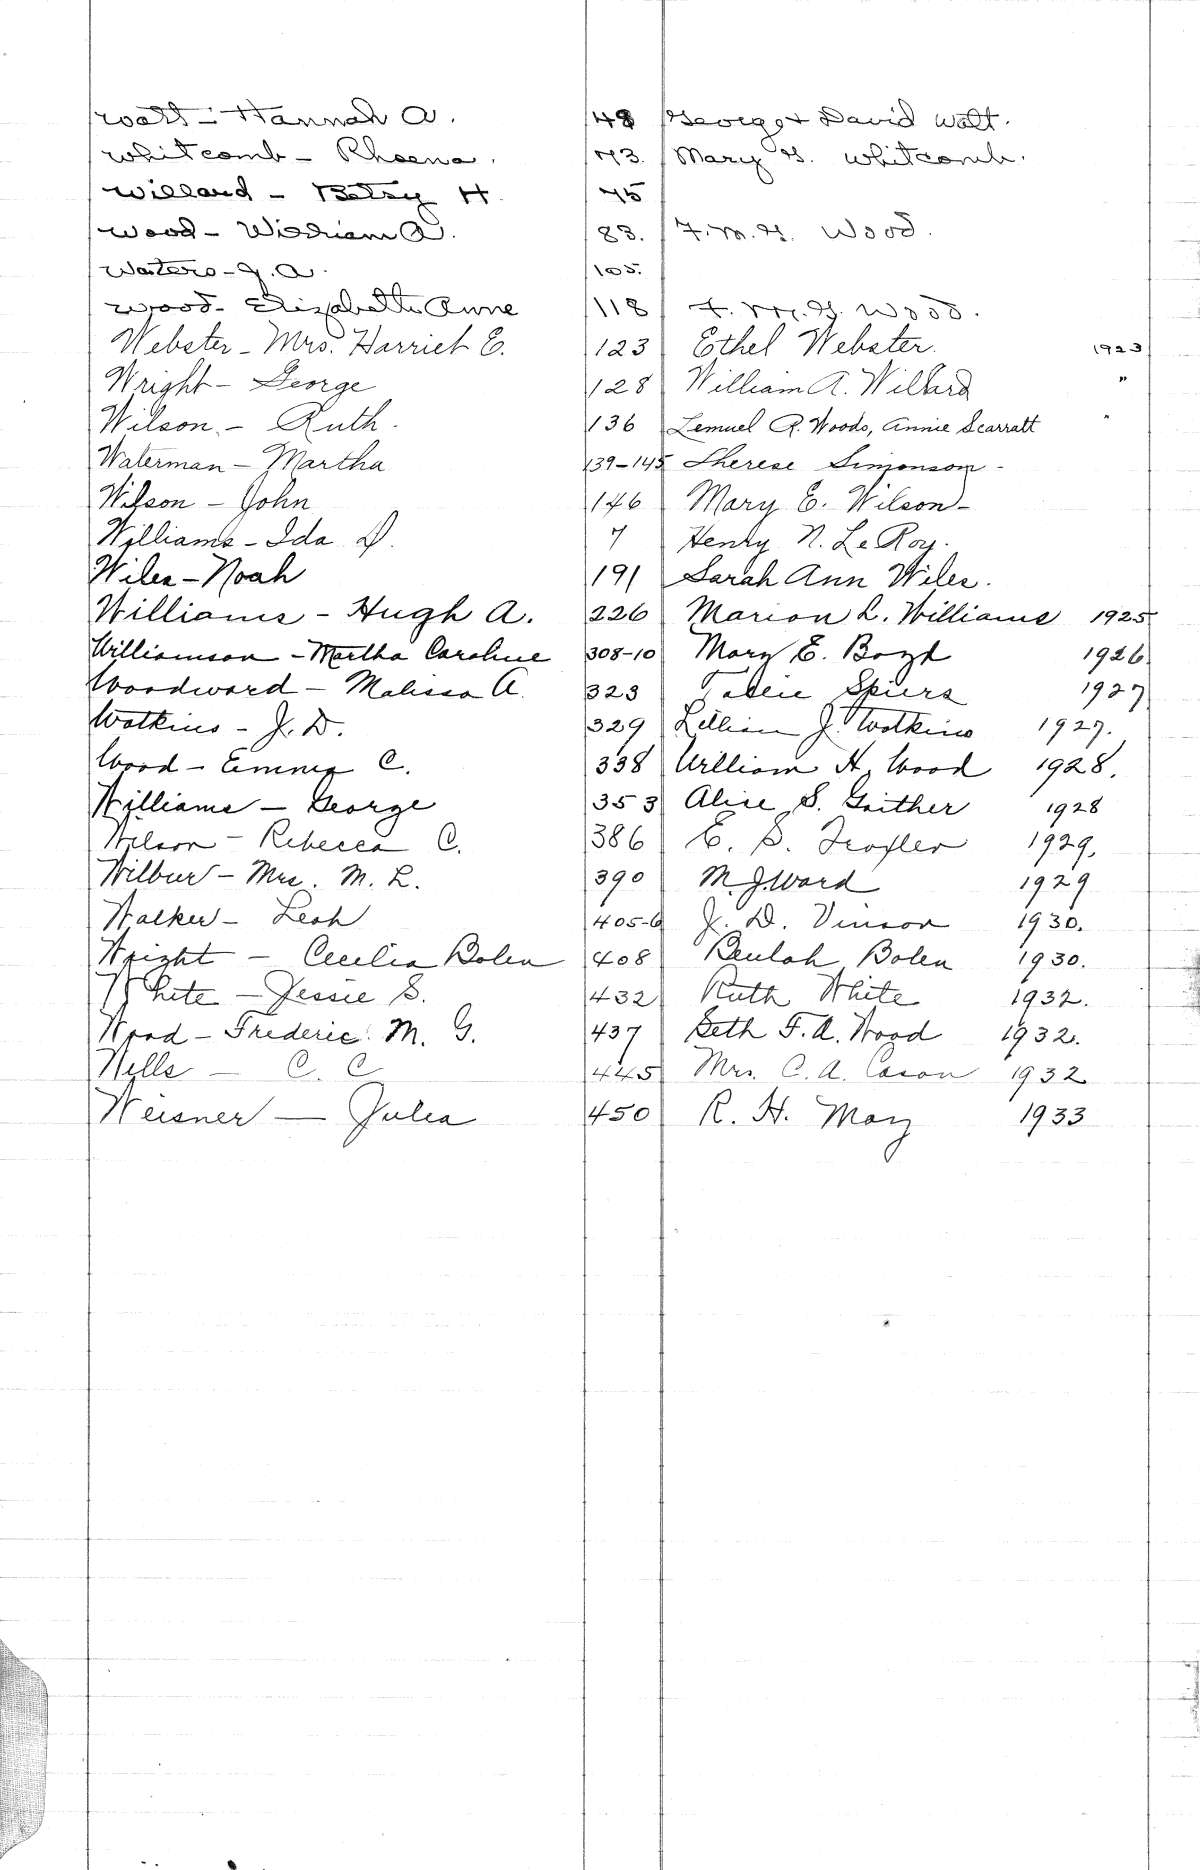 Watt - Hannah A. 48 George & David Watt.
Whitcomb - Rhoena. 73. Mary G. Whitcomb.
Willard - Betsy H 75
Wood - William A. 83. F. M. G. Wood.
Waters - J. A. 105.
Wood - Elizabeth Anne 118 F. M. G. Wood.
Webster - Mrs. Harriet E. 123 Ethel Webster. 1923
Wright - George 128 William A. Willard "
Wilson - Ruth. 136 Lemuel R. Woods, Annie Scarratt "
Waterman - Martha 139-145 Therese Simonson -
Wilson - John 146 Mary E. Wilson -
Williams - Ida D. 7 Henry N. LeRoy.
Wiles - Noah 191 Sarah Ann Wiles.
Williams - Hugh A. 226 Marion L. Williams 1925
Williamson - Martha Caroline 308-10 Mary E. Boyd 1926
Woodward - Malissa A. 323 Spiers 1927
Watkins - J. D. 329 Lillian J. Watkins 1927.
Wood - Emma C. 338 William H. Wood 1928.
Williams - George 353 Alice S. Gaither 1928
Wilson - Rebecca C. 386 E. S. Troxler 1929.
Wilbur - Mrs. M. L. 390 M. J. Ward 1929
Walker - Leah 405-6 J. D. Vinson 1930.
Wright - Cecilia Bolen 408 Beulah Bolen 1930.
White - Jessie S. 432 Ruth White 1932.
Wood - Frederic M. G. 437 Seth F. A. Wood 1932.
Wells - C. C 445 Mrs. C. A. Cason 1932
Weisner - Julia 450 R. H. May 1933